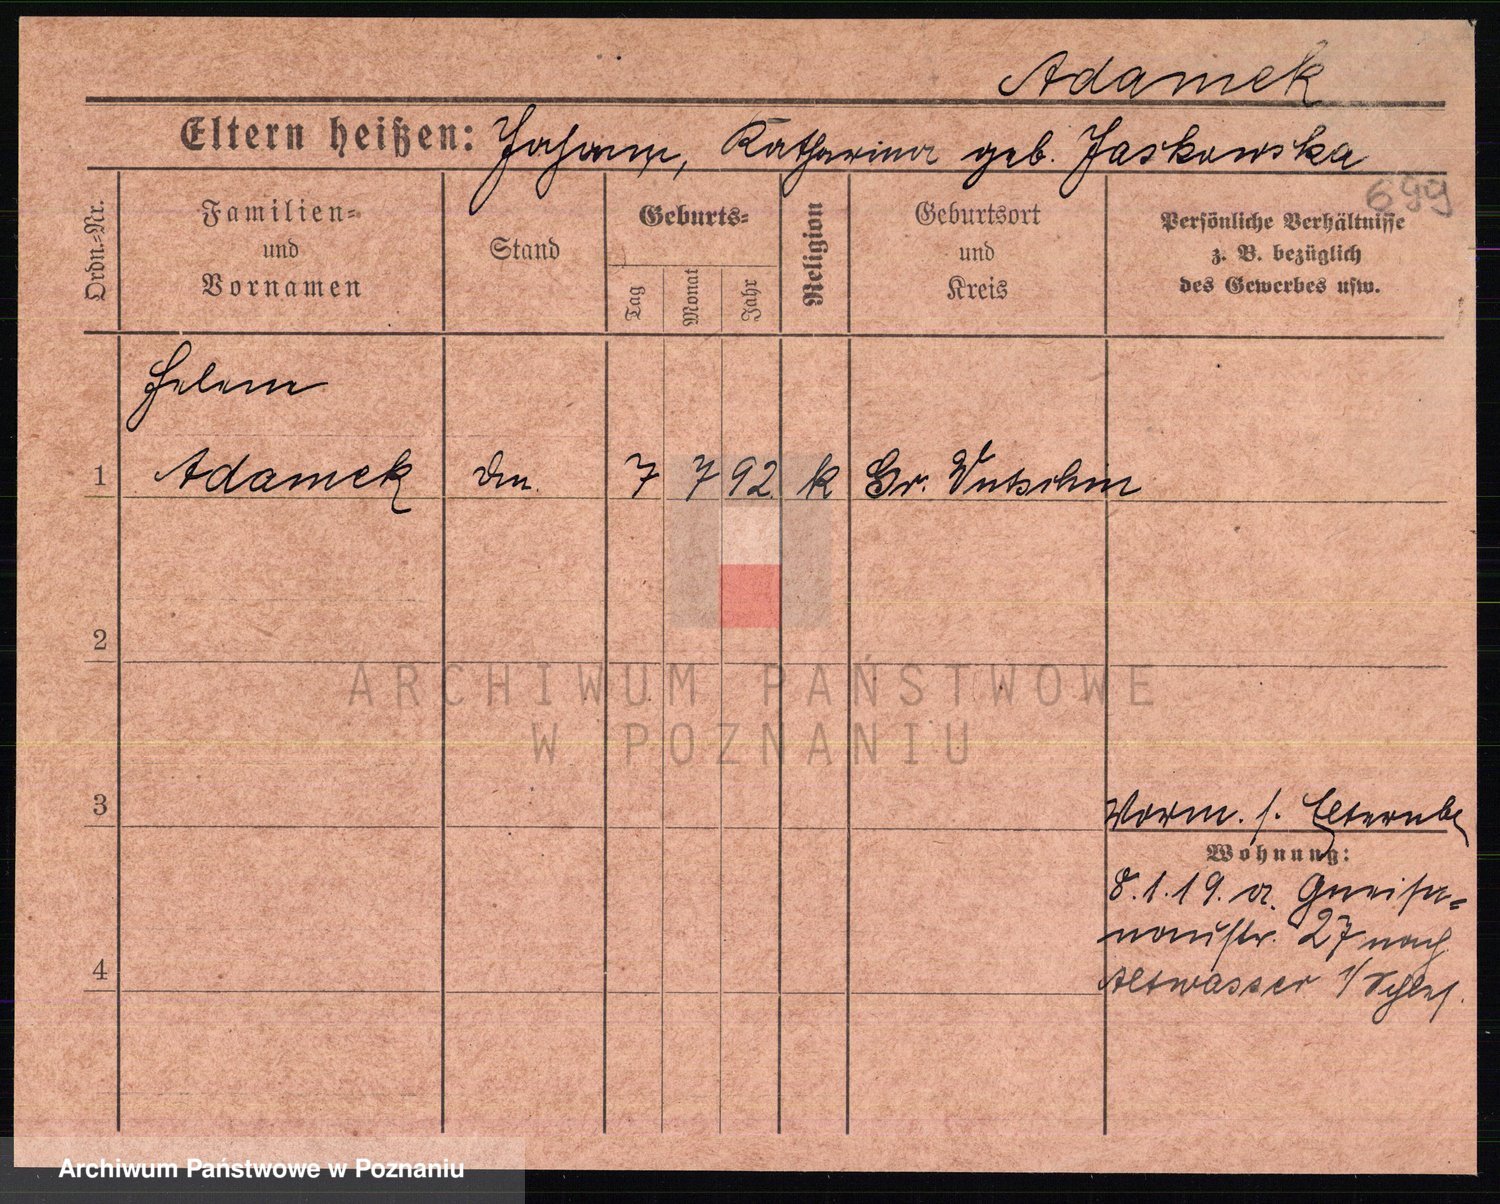 Adamek
Eltern heißen: Johann, Katharina geb. Jaskowska
699
Ordn.=Nr.
Familien=
und
Vornamen
Stand
Geburts=
Tag
Monat
Jahr
Religion
Geburtsort
und
Kreis
Persönliche Verhältnisse
z. B. bezüglich
des Gewerbes usw.
Helene
1 Adamek 7 7 92 k Gr. Wutschin
2
ARCHIWUM PAŃSTWOWE
W POZNANIU
3
Vorm. s. Elternb
Wohnung:
8.1.19. a. Gneise=
naustr. 27 nach
4
Altwasser i/Schles.
Archiwum Państwowe w Poznaniu